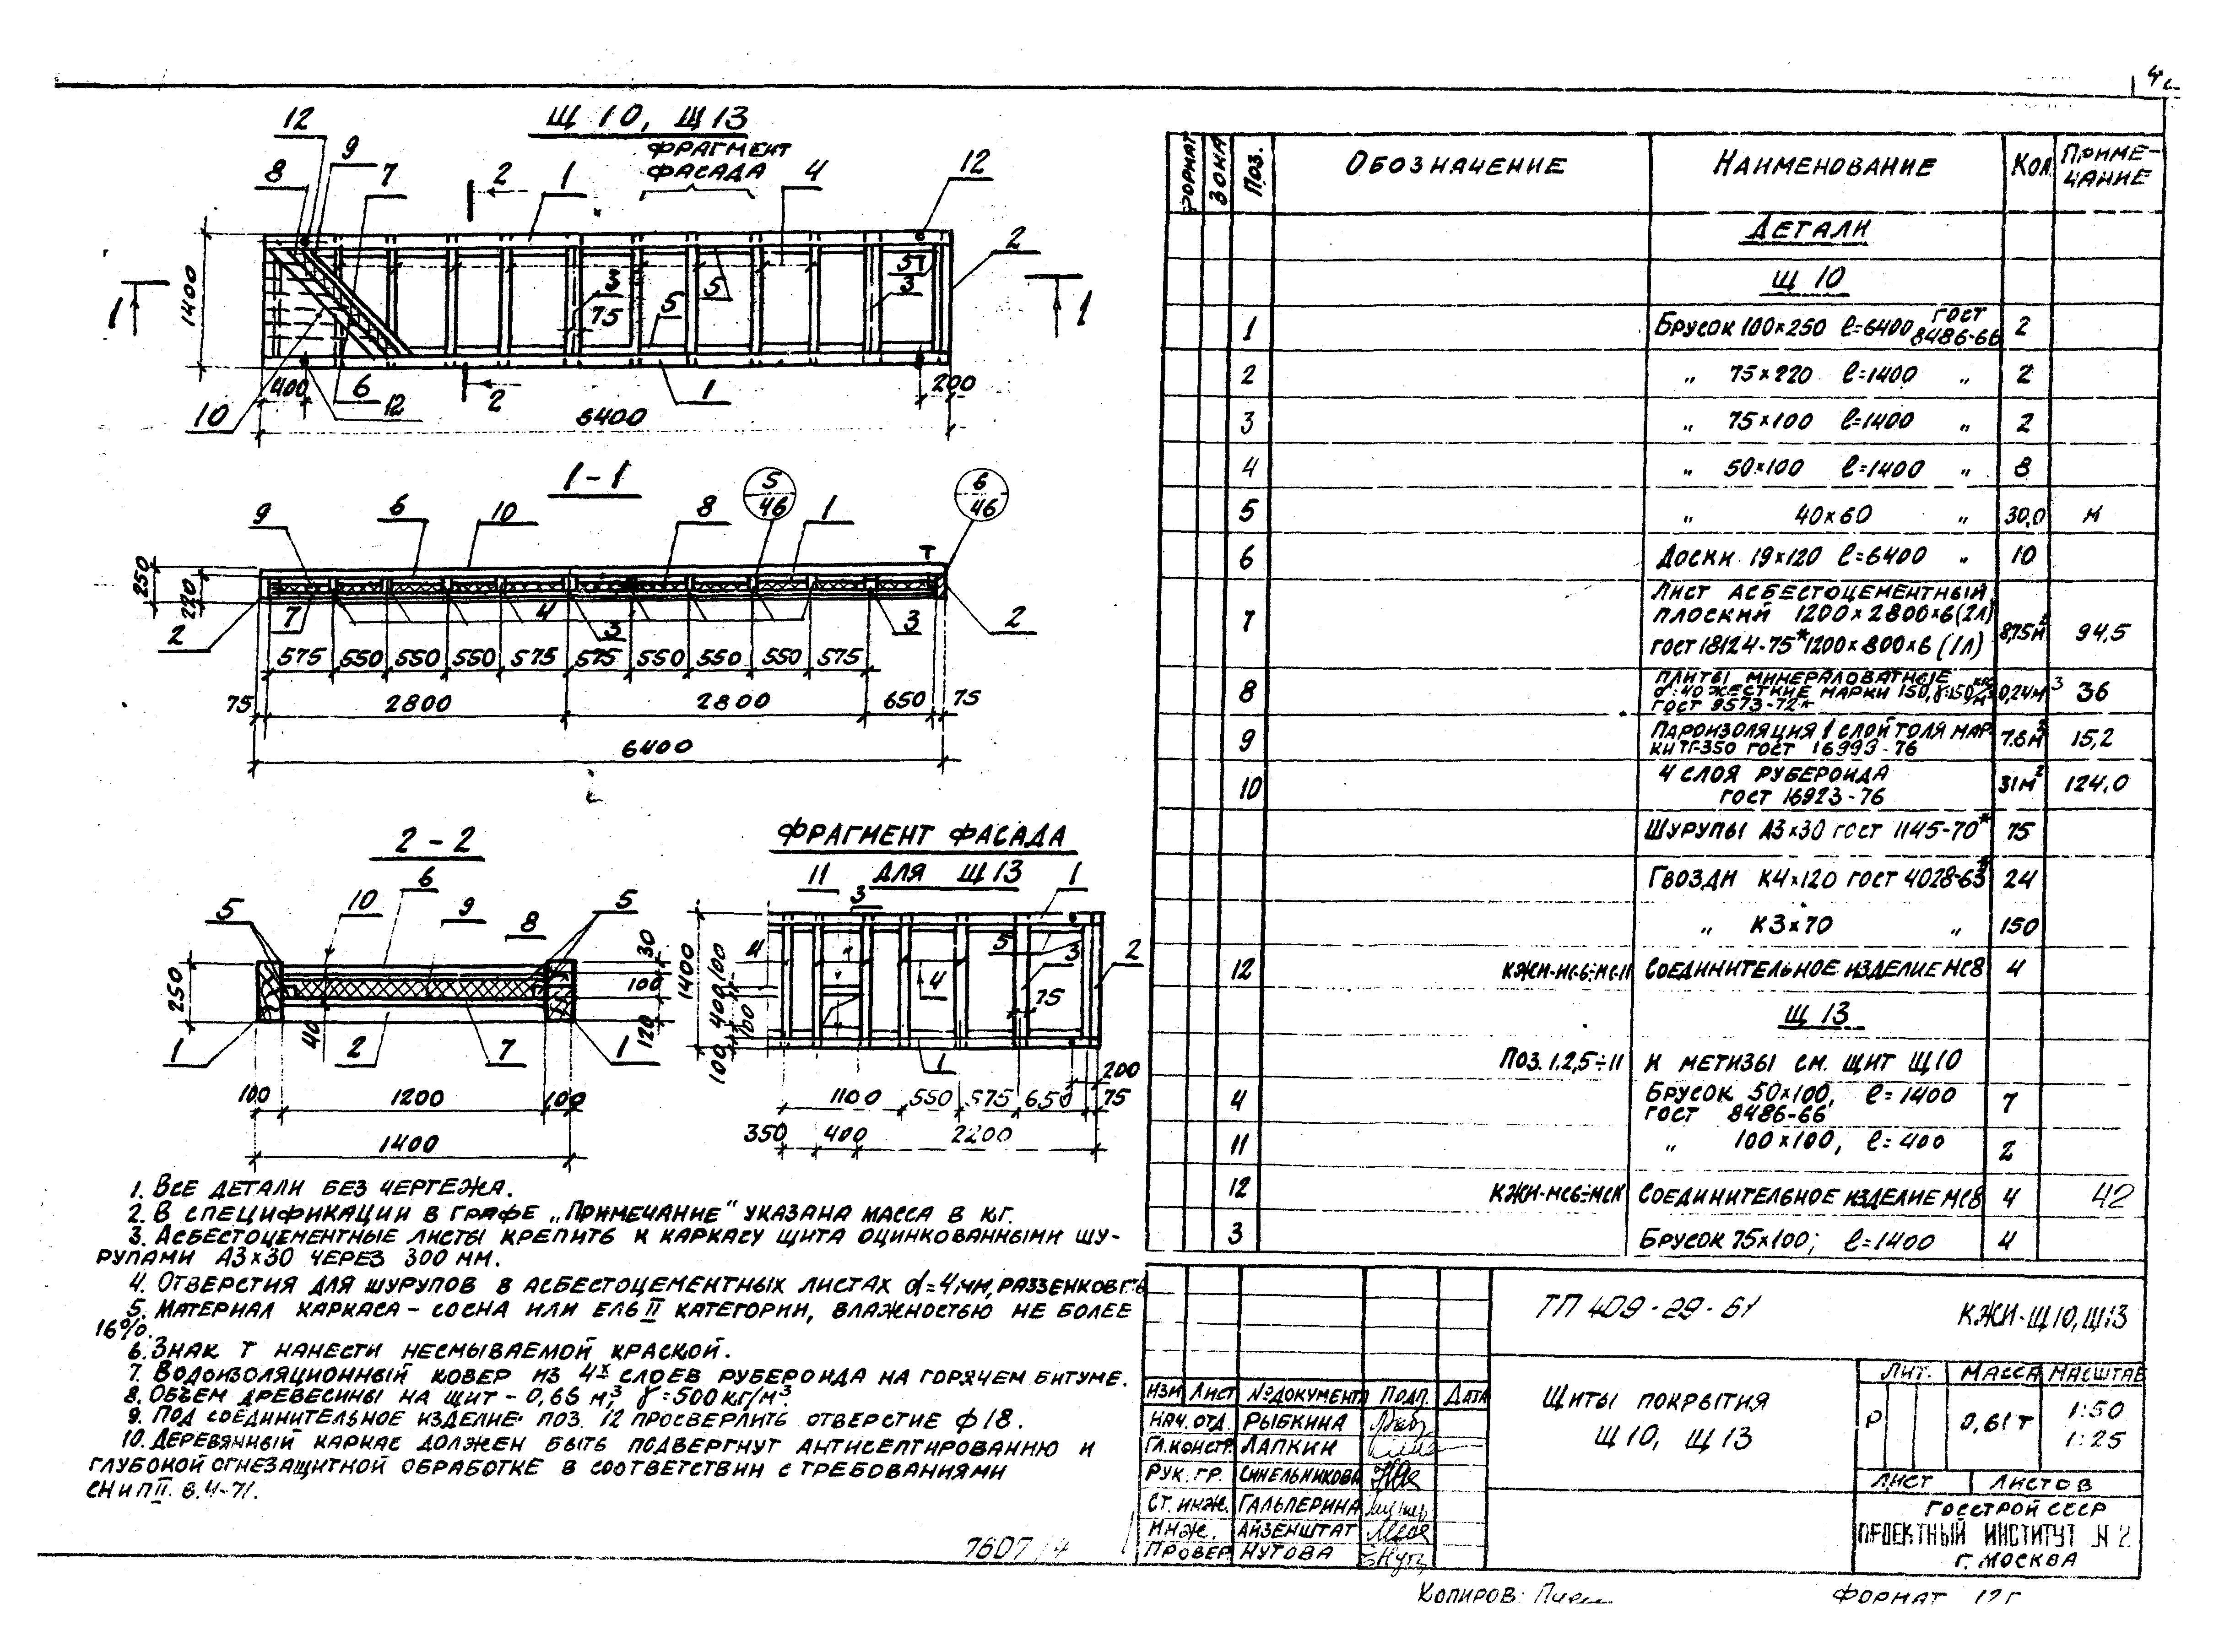 Щ 10, Щ 13
ФРАГМЕНТ
ФАСАДА
12
9
8
7
2
1
4
12
2
1400
1
3
75
5
5
57
3
1
400
6
12
2
1
200
10
6400
1-1
9
6
10
8
5
46
1
6
46
Т
250
220
2
7
4
3
3
2
575 550 550 550 575 575 550 550 550 575
75 2800 2800 650 75
6400
2-2
6
5
10
9
8
5
250
30
100
120
40
1
2
7
1
100 1200 100
1400
ФРАГМЕНТ ФАСАДА
ДЛЯ Щ 13
11
3
1
4
5
3
2
4
75
1400
100
400
100
100
1
200
1100 550 575 650 75
350 400 2200
1. ВСЕ ДЕТАЛИ БЕЗ ЧЕРТЕЖА.
2. В СПЕЦИФИКАЦИИ В ГРАФЕ „ПРИМЕЧАНИЕ" УКАЗАНА МАССА В КГ.
3. АСБЕСТОЦЕМЕНТНЫЕ ЛИСТЫ КРЕПИТЬ К КАРКАСУ ЩИТА ОЦИНКОВАННЫМИ ШУ-
РУПАМИ А3×30 ЧЕРЕЗ 300 ММ.
4. ОТВЕРСТИЯ ДЛЯ ШУРУПОВ В АСБЕСТОЦЕМЕНТНЫХ ЛИСТАХ d=4 мм,
5. МАТЕРИАЛ КАРКАСА – СОСНА ИЛИ ЕЛЬ II КАТЕГОРИИ, ВЛАЖНОСТЬЮ НЕ БОЛЕЕ
16%.
6. ЗНАК Т НАНЕСТИ НЕСМЫВАЕМОЙ КРАСКОЙ.
7. ВОДОИЗОЛЯЦИОННЫЙ КОВЕР ИЗ 4х СЛОЕВ РУБЕРОИДА НА ГОРЯЧЕМ БИТУМЕ.
8. ОБЪЕМ ДРЕВЕСИНЫ НА ЩИТ – 0,65 м³, γ=500 КГ/М³.
9. ПОД СОЕДИНИТЕЛЬНОЕ ИЗДЕЛИЕ ПОЗ. 12 ПРОСВЕРЛИТЬ ОТВЕРСТИЕ ф 18.
10. ДЕРЕВЯННЫЙ КАРКАС ДОЛЖЕН БЫТЬ ПОДВЕРГНУТ АНТИСЕПТИРОВАНИЮ И
ГЛУБОКОЙ ОГНЕЗАЩИТНОЙ ОБРАБОТКЕ В СООТВЕТСТВИИ С ТРЕБОВАНИЯМИ
СНиП II. В.4-71.
7607/4
ФОРМАТ ЗОНА ПОЗ. ОБОЗНАЧЕНИЕ НАИМЕНОВАНИЕ КОЛ. ПРИМЕ-
ЧАНИЕ
ДЕТАЛИ
Щ 10
1 БРУСОК 100×250 ℓ=6400 ГОСТ 8486-66 2
2 „ 75×220 ℓ=1400 „ 2
3 „ 75×100 ℓ=1400 „ 2
4 „ 50×100 ℓ=1400 „ 8
5 „ 40×60 „ 30,0 М
6 ДОСКИ 19×120 ℓ=6400 „ 10
ЛИСТ АСБЕСТОЦЕМЕНТНЫЙ
7 ПЛОСКИЙ 1200×2800×6 (2Л)
ГОСТ 18124-75* 1200×800×6 (1Л) 8,75 м² 94,5
ПЛИТЫ МИНЕРАЛОВАТНЫЕ
8 δ=40 ЖЕСТКИЕ МАРКИ 150, γ=150 кг/м³ 0,24 м³ 36
ГОСТ 9573-72*
9 ПАРОИЗОЛЯЦИЯ 1 СЛОЙ ТОЛЯ МАР-
КИ ТГ-350 ГОСТ 16999-76 7.6 м² 15,2
10 4 СЛОЯ РУБЕРОИДА
ГОСТ 16923-76 31 м² 124,0
ШУРУПЫ А3×30 ГОСТ 1145-70* 75
ГВОЗДИ К4×120 ГОСТ 4028-63* 24
„ К3×70 „ 150
12 КЖИ-МС6÷МС11 СОЕДИНИТЕЛЬНОЕ ИЗДЕЛИЕ МС8 4
Щ 13
ПОЗ. 1.2,5÷11 И МЕТИЗЫ СМ. ЩИТ Щ10
4 БРУСОК 50×100, ℓ=1400 7
ГОСТ 8486-66
11 „ 100×100, ℓ=400 2
12 КЖИ-МС6÷МС11 СОЕДИНИТЕЛЬНОЕ ИЗДЕЛИЕ МС8 4 42
3 БРУСОК 75×100; ℓ=1400 4
ТП 409-29-61 КЖИ-Щ10, Щ13
ИЗМ ЛИСТ №ДОКУМЕНТА ПОДП. ДАТА
НАЧ. ОТД. РЫБКИНА
ГЛ.КОНСТР. ЛАПКИН
РУК. ГР. СИНЕЛЬНИКОВА
СТ. ИНЖ. ГАЛЬПЕРИНА
ИНЖ. АЙЗЕНШТАТ
ПРОВЕР. НУТОВА
ЩИТЫ ПОКРЫТИЯ
Щ 10, Щ 13
ЛИТ. МАССА МАСШТАБ
Р 0,61 Т 1:50
1:25
ЛИСТ ЛИСТОВ
ГОССТРОЙ СССР
ПРОЕКТНЫЙ ИНСТИТУТ №2
Г. МОСКВА
КОПИРОВ:
ФОРМАТ 12Г